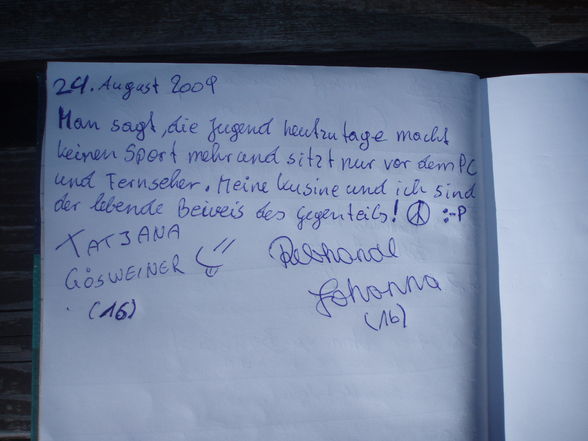 24. August 2009
Man sagt, die Jugend heutzutage macht
keinen Sport mehr und sitzt nur vor dem PC
und Fernseher. Meine Kusine und ich sind
der lebende Beweis des Gegenteils! ☮ :-P
TATJANA
GÖSWEINER
(16)
Johanna
(16)